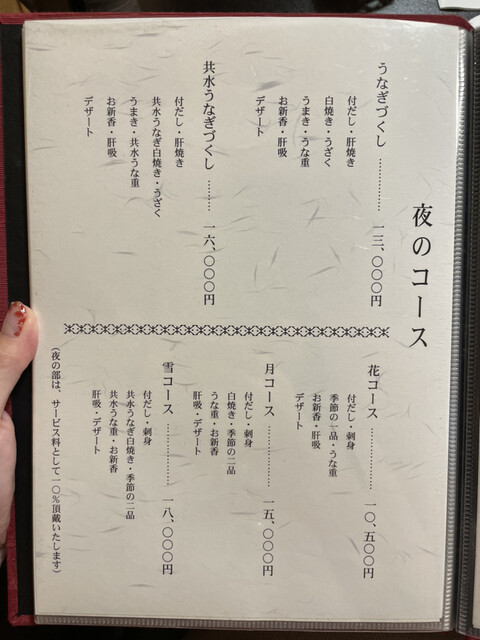 夜のコース
うなぎづくし …………… 一三、〇〇〇円
付だし・肝焼き
白焼き・うざく
うまき・うな重
お新香・肝吸
デザート
共水うなぎづくし ……… 一六、〇〇〇円
付だし・肝焼き
共水うなぎ白焼き・うざく
うまき・共水うな重
お新香・肝吸
デザート
花コース ……………… 一〇、五〇〇円
付だし・刺身
季節の一品・うな重
お新香・肝吸
デザート
月コース ……………… 一五、〇〇〇円
付だし・刺身
白焼き・季節の二品
うな重・お新香
肝吸・デザート
雪コース ……………… 一八、〇〇〇円
付だし・刺身
共水うなぎ白焼き・季節の二品
共水うな重・お新香
肝吸・デザート
(夜の部は、サービス料として一〇%頂戴いたします)